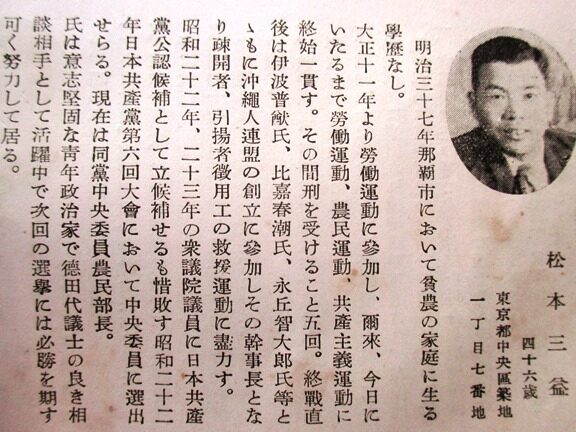 松本三益
四十六歳
東京都中央區築地
一丁目七番地
明治三十七年那覇市において貧農の家庭に生る
學歷なし。
大正十一年より勞働運動に參加し、爾來、今日に
いたるまで勞働運動、農民運動、共產主義運動に
終始一貫す。その間刑を受けること五回。終戰直
後は伊波普猷氏、比嘉春潮氏、永丘智太郎氏等と
ゝもに沖繩人連盟の創立に參加しその幹事長とな
り疎開者、引揚者徵用工の救援運動に盡力す。
昭和二十二年、二十三年の衆議院議員に日本共產
黨公認候補として立候補せるも惜敗す昭和二十二
年日本共產黨第六回大會において中央委員に選出
せらる。現在は同黨中央委員農民部長。
氏は意志堅固な靑年政治家で德田代議士の良き相
談相手として活躍中で次回の選擧には必勝を期す
可く努力して居る。